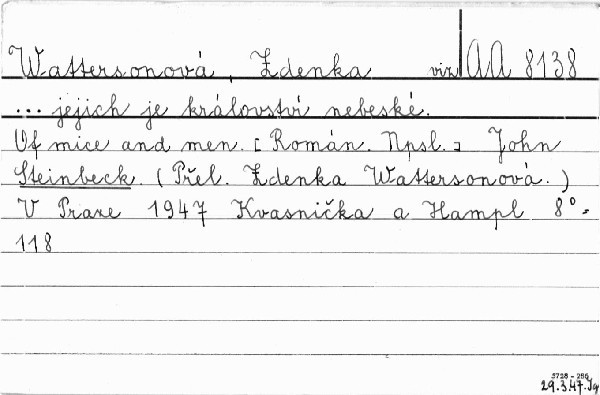 Wattersonová, Zdenka viz AA 8138
... jejich je království nebeské.
Of mice and men. [Román. Npsl.] John
Steinbeck. (Přel. Zdenka Wattersonová.)
V Praze 1947 Kvasnička a Hampl 8°-
118
5728 - 256
29.3.47.